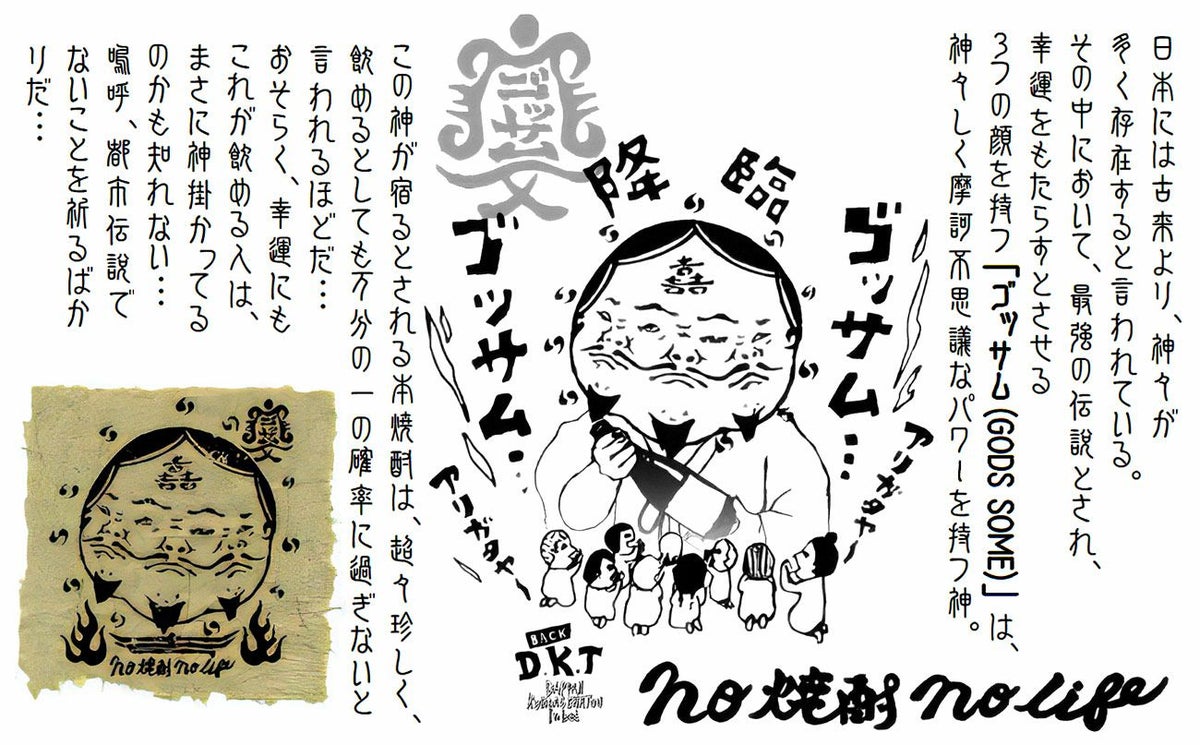 日本には古来より、神々が
多く存在すると言われている。
その中において、最強の伝説とされ、
幸運をもたらすとさせる
3つの顔を持つ『ゴッサム(GODS SOME)』は、
神々しく摩訶不思議なパワーを持つ神。
降臨
ゴッサム…
ゴッサム…
アリガタヤー
アリガタヤー
ゴッサム
この神が宿るとされる本焼酎は、超々珍しく、
飲めるとしても万分の一の確率に過ぎないと
言われるほどだ…
おそらく、幸運にも
これが飲める人は、
まさに神掛かってる
のかも知れない…
嗚呼、都市伝説で
ないことを祈るばか
りだ…
no 焼酎 no life
BACK
D.K.T
no 焼酎 no life